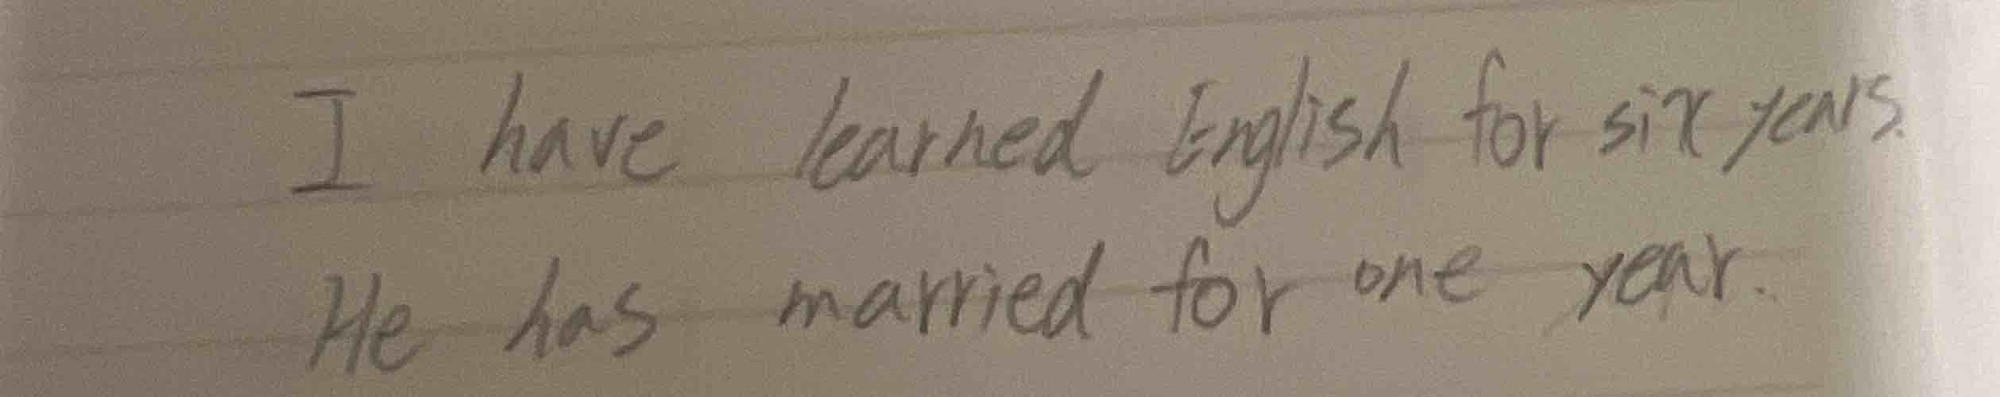 I have learned English for six years.
He has married for one year.